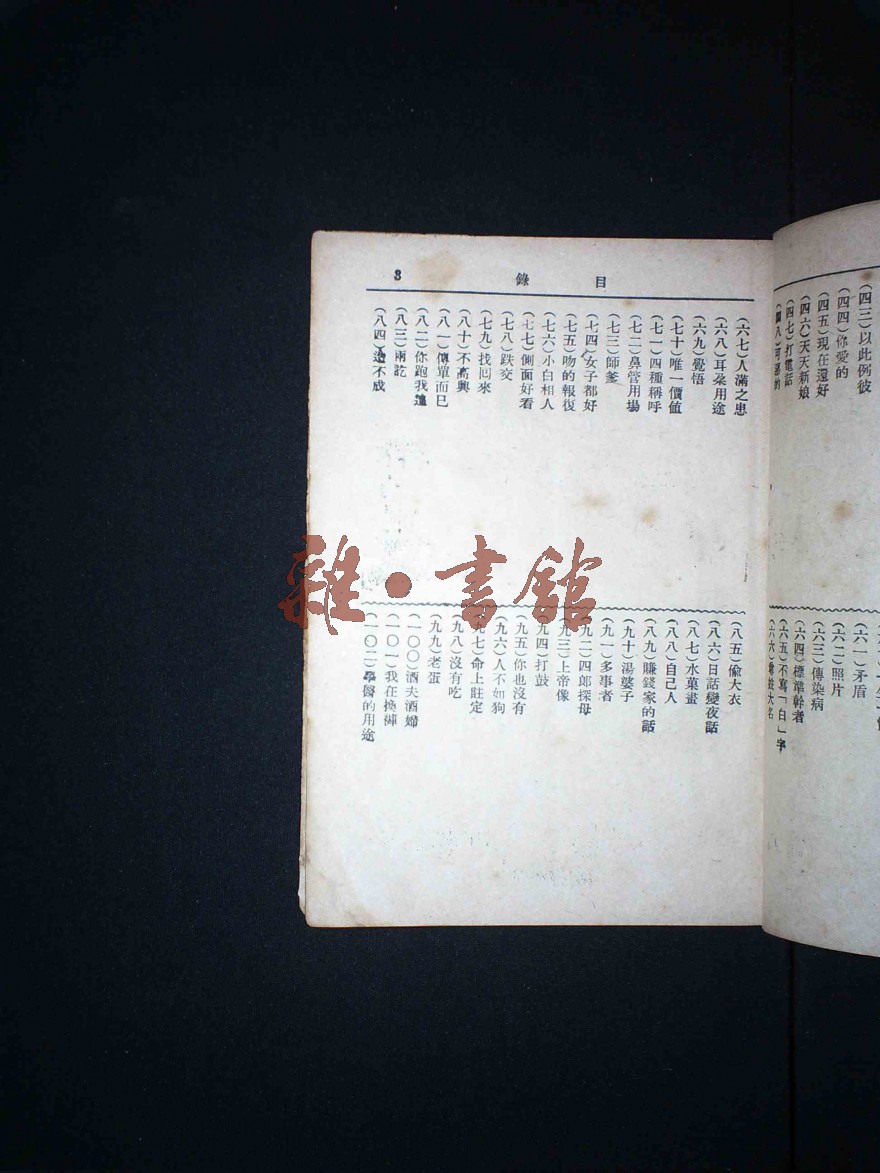 (四三)以此例彼
(四四)你愛的
(四五)現在還好
(四六)天天新娘
(四七)打電話
(四八)可惡的
(六一)矛盾
(六二)照片
(六三)傳染病
(六四)標準幹者
(六五)不寫「白」字
目錄 3
(六七)人滿之患
(六八)耳朶用途
(六九)覺悟
(七十)唯一價值
(七一)四種稱呼
(七二)鼻管用場
(七三)師爹
(七四)女子都好
(七五)吻的報復
(七六)小白相人
(七七)側面好看
(七八)跌交
(七九)找回來
(八十)不高興
(八一)傳單而已
(八二)你跑我進
(八三)兩訖
(八四)還不成
(八五)偸大衣
(八六)日話變夜話
(八七)水菓畫
(八八)自己人
(八九)賺錢家的話
(九十)湯婆子
(九一)多事者
(九二)四郎探母
(九三)上帝像
(九四)打鼓
(九五)你也沒有
(九六)人不如狗
(九七)命上註定
(九八)沒有吃
(九九)老蛋
(一〇〇)酒夫酒婦
(一〇一)我在換褲
(一〇二)學醫的用途
雜·書館